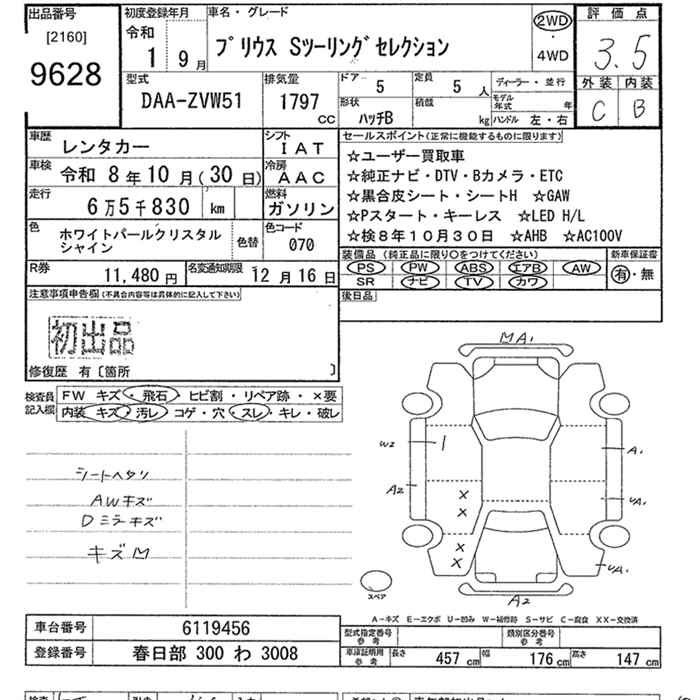 出品番号
[2160]
9628
初度登録年月
令和
1 9月
車名・グレード
プリウス Sツーリングセレクション
2WD
・
4WD
評価点
3.5
外装 内装
C B
型式
DAA-ZVW51
排気量
1797
CC
ドア 5
定員 5 人
ディーラー・並行
形状
ハッチB
積載
kg
モデル年式 年
ハンドル 左・右
車歴
レンタカー
シフト
IAT
車検
令和 8年10月(30日)
冷房
AAC
走行
6万5千830 km
燃料
ガソリン
色
ホワイトパールクリスタル
シャイン
色替
色コード
070
R券
11,480円
名変通知期限
12月16日
セールスポイント(正常に機能するものに限ります)
☆ユーザー買取車
☆純正ナビ・DTV・Bカメラ・ETC
☆黒合皮シート・シートH ☆GAW
☆Pスタート・キーレス ☆LED H/L
☆検8年10月30日 ☆AHB ☆AC100V
装備品(純正品に限り○をつけてください)
PS PW ABS エアB AW
SR ナビ TV カワ
新車保証書
有・無
後日品
注意事項申告欄(不具合内容等は具体的に記入して下さい)
初出品
修復歴 有〔箇所 〕
検査員
記入欄
FW キズ・飛石・ヒビ割・リペア跡・×要
内装 キズ・汚レ・コゲ・穴・スレ・キレ・破レ
シートヘタリ
AWキズ
Dミラキズ
キズM
MA1
W2
A2
A1
A1
A1
A2
スペア
A-キズ E-エクボ U-凹み W-補修跡 S-サビ C-腐食 XX-交換済
車台番号
6119456
登録番号
春日部 300 わ 3008
型式指定番号
参考
類別区分番号
参考
車庫証明用
参考
長さ 457 cm
幅 176 cm
高さ 147 cm